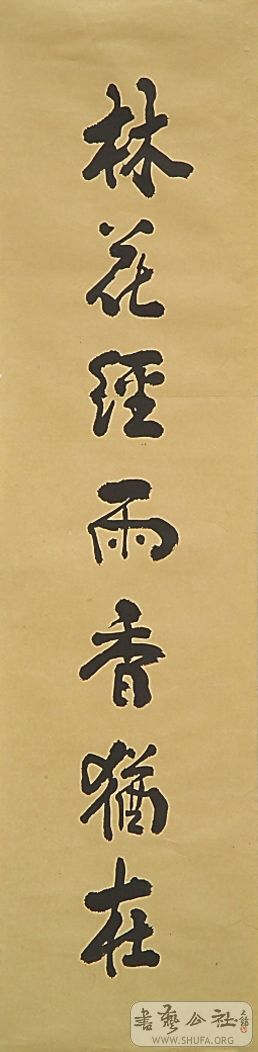 林花經雨香猶在
書藝公社
WWW.SHUFA.ORG